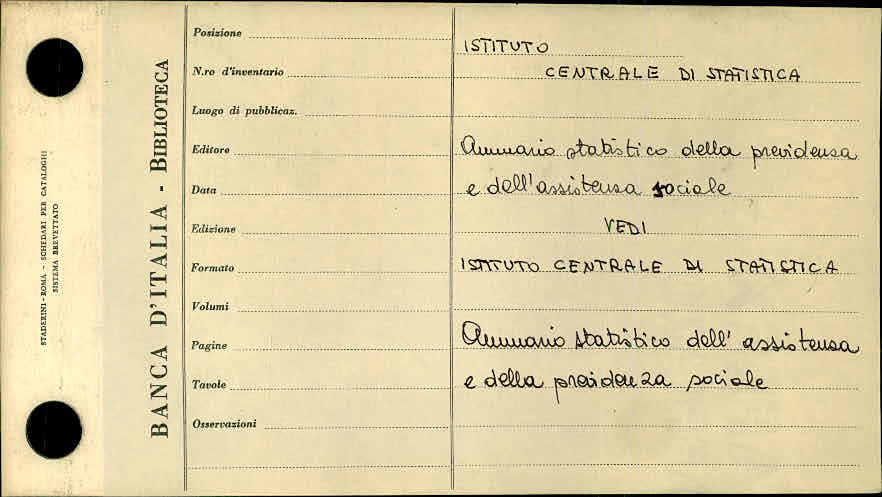 STADERINI - ROMA - SCHEDARI PER CATALOGHI
SISTEMA BREVETTATO
BANCA D'ITALIA - BIBLIOTECA
Posizione
N.ro d'inventario
Luogo di pubblicaz.
Editore
Data
Edizione
Formato
Volumi
Pagine
Tavole
Osservazioni
ISTITUTO
CENTRALE DI STATISTICA
Annuario statistico della previdenza
e dell'assistenza sociale
VEDI
ISTITUTO CENTRALE DI STATISTICA
Annuario statistico dell'assistenza
e della previdenza sociale